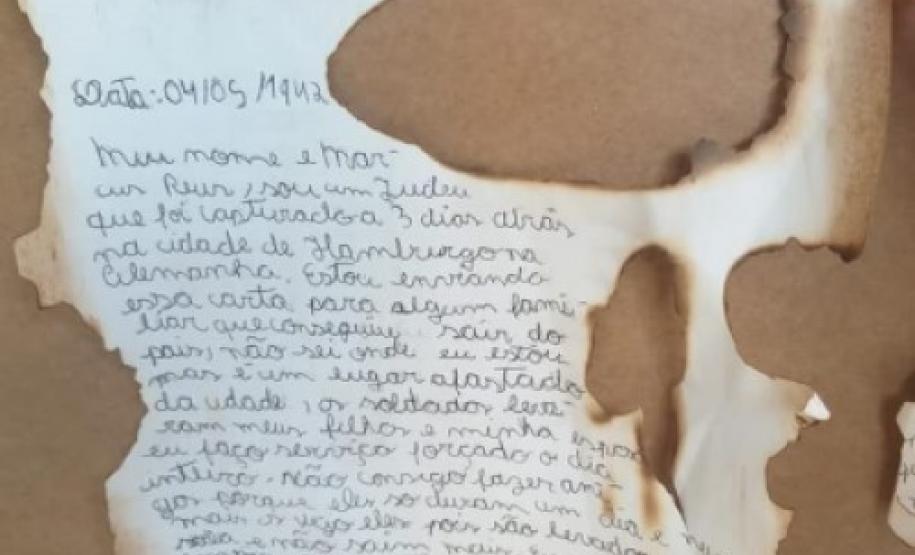 Data: 04/05/1942
Meu nome e Mar-
cus Reus, sou um Judeu
que foi capturado a 3 dias atrás
na cidade de Hamburgo na
Alemanha. Estou enviando
essa carta para algum fami-
liar que conseguiu sair do
pais, não sei onde eu estou
mas é um lugar afastado
da cidade, os soldados leva-
ram meus filhos e minha espos
eu faço serviço forçado o dia
inteiro. Não consigo fazer ami-
gos porque eles so duram um dia e n
mais os vejo eles pois são levados
e não saim mais